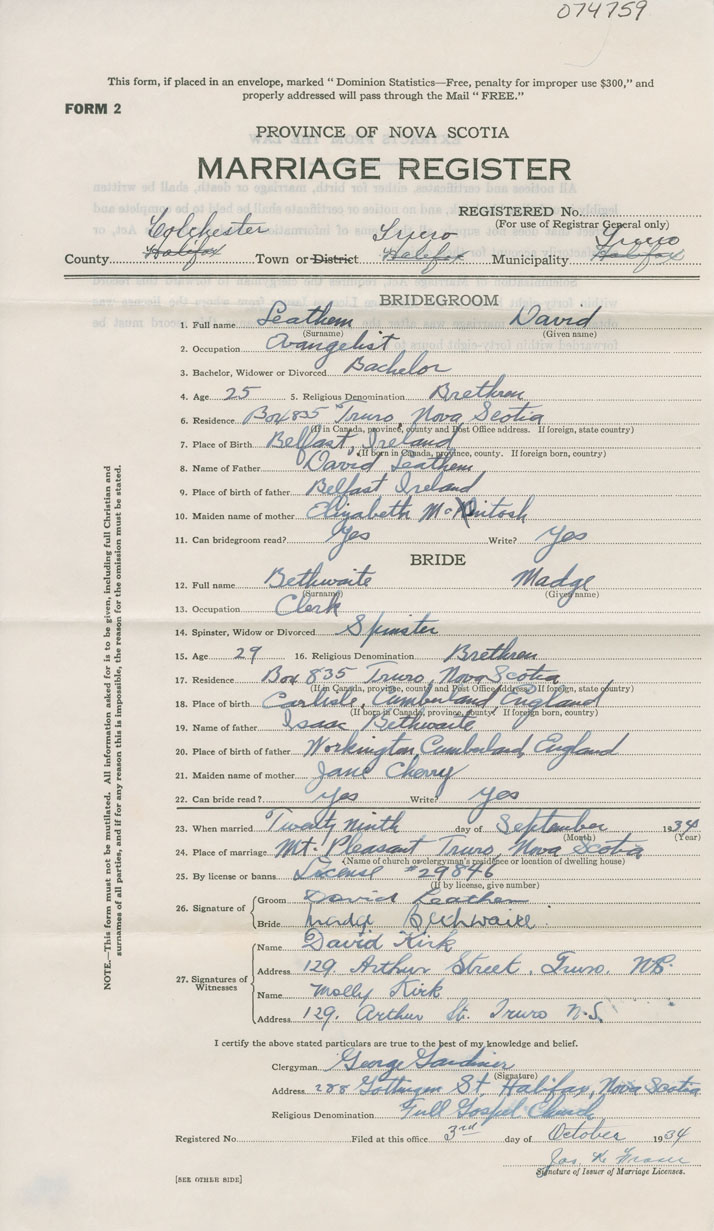 074759
This form, if placed in an envelope, marked “ Dominion Statistics—Free, penalty for improper use $300,” and
properly addressed will pass through the Mail “ FREE.”
FORM 2
PROVINCE OF NOVA SCOTIA
MARRIAGE REGISTER
REGISTERED No.
(For use of Registrar General only)
Colchester Truro Truro
County Halifax Town or District Halifax Municipality Halifax
BRIDEGROOM
1. Full name Leathem David
(Surname) (Given name)
2. Occupation Evangelist
3. Bachelor, Widower or Divorced Bachelor
4. Age 25 5. Religious Denomination Brethren
6. Residence Box 835 Truro, Nova Scotia
(If in Canada, province, county and Post Office address. If foreign, state country)
7. Place of Birth Belfast, Ireland
(If born in Canada, province, county. If foreign born, country)
8. Name of Father David Leathem
9. Place of birth of father Belfast Ireland
10. Maiden name of mother Elizabeth McKintosh
11. Can bridegroom read? Yes Write? Yes
BRIDE
12. Full name Bethwaite Madge
(Surname) (Given name)
13. Occupation Clerk
14. Spinster, Widow or Divorced Spinster
15. Age 29 16. Religious Denomination Brethren
17. Residence Box 835 Truro, Nova Scotia
(If in Canada, province, county and Post Office address. If foreign, state country)
18. Place of birth Carlisle, Cumberland England
(If born in Canada, province, county. If foreign born, country)
19. Name of father Isaac Bethwaite
20. Place of birth of father Workington, Cumberland, England
21. Maiden name of mother Jane Cherry
22. Can bride read? Yes Write? Yes
23. When married Twenty ninth day of September 1934
(Month) (Year)
24. Place of marriage Mt. Pleasant Truro, Nova Scotia
(Name of church or clergyman's residence or location of dwelling house)
25. By license or banns License #29846
(If by license, give number)
26. Signature of Groom David Leathem
Bride Madge Bethwaite
27. Signatures of Witnesses
Name David Kirk
Address 129. Arthur Street, Truro, NS.
Name Molly Kirk
Address 129. Arthur St. Truro N.S.
I certify the above stated particulars are true to the best of my knowledge and belief.
Clergyman George Gardiner
(Signature)
Address 288 Gottingen St, Halifax, Nova Scotia
Religious Denomination Full Gospel Church
Registered No. Filed at this office 3rd day of October 1934
Jas. K. Fraser
Signature of Issuer of Marriage Licenses.
[SEE OTHER SIDE]
NOTE.—This form must not be mutilated. All information asked for is to be given, including full Christian and
surnames of all parties, and if for any reason this is impossible, the reason for the omission must be stated.